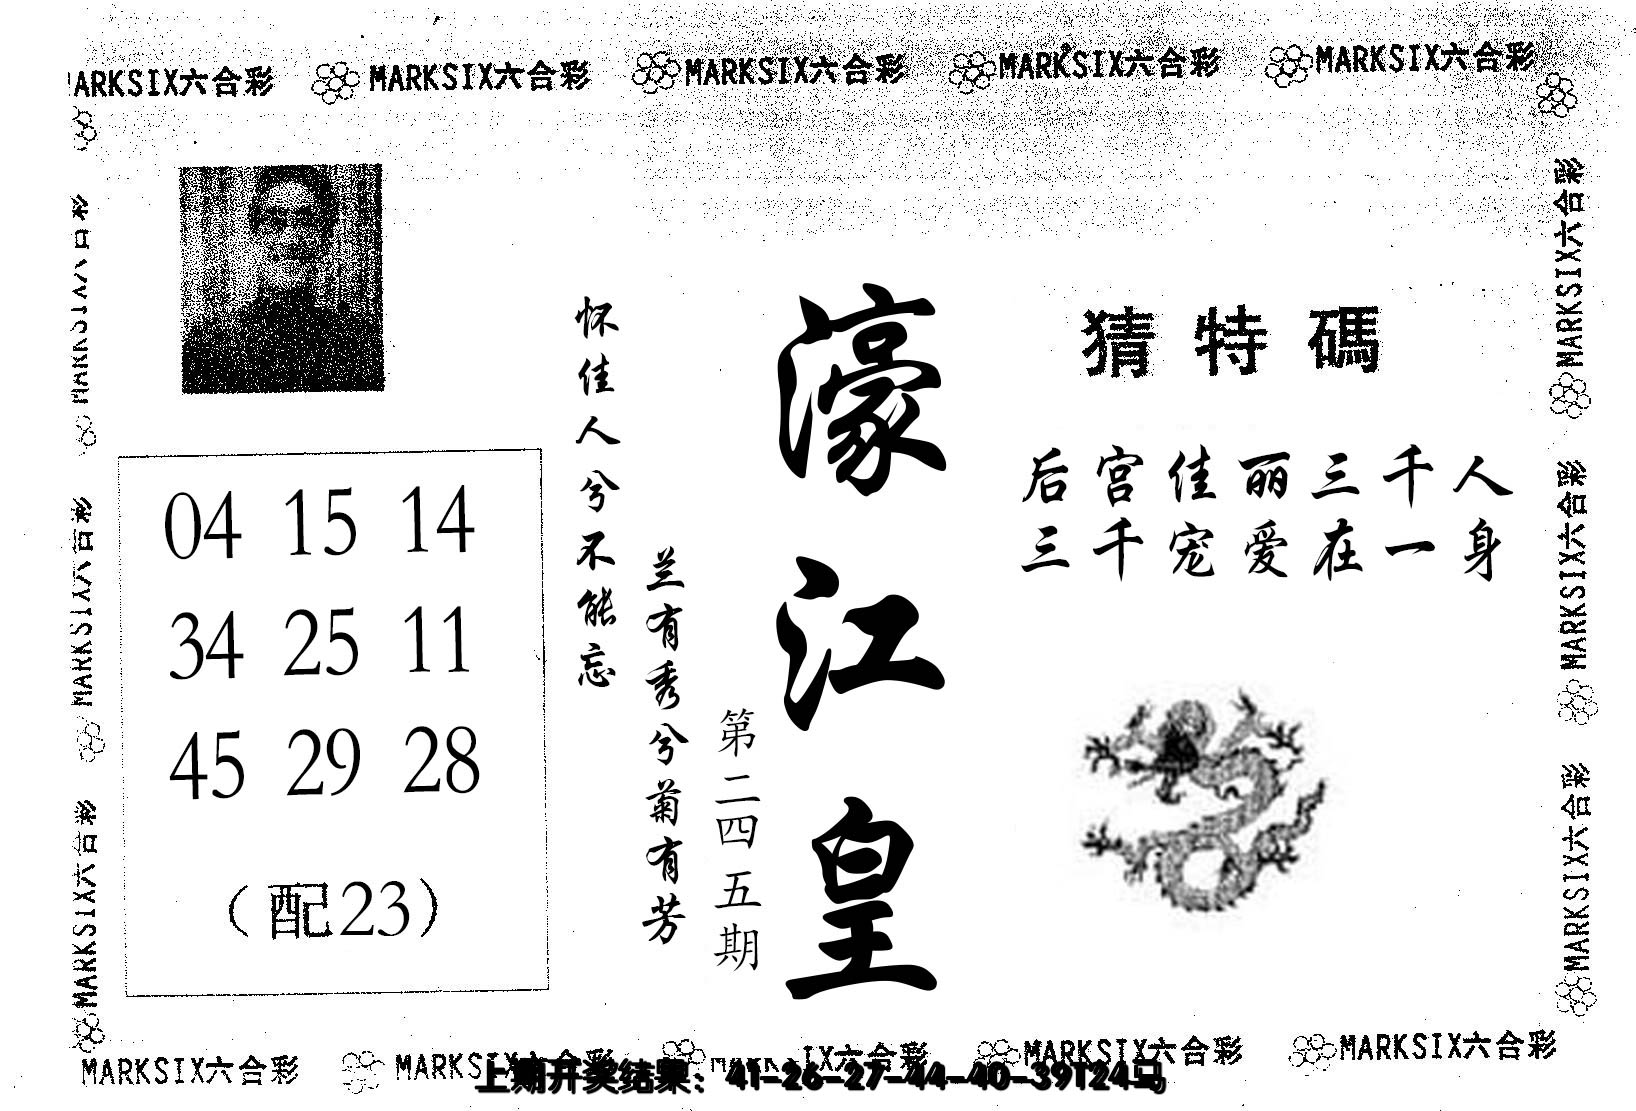 MARKSIX六合彩 MARKSIX六合彩 MARKSIX六合彩 MARKSIX六合彩
MARKSIX六合彩
猜特碼
后宫佳丽三千人
三千宠爱在一身
濠江皇
第二四五期
兰有秀兮菊有芳
怀佳人兮不能忘
04 15 14
34 25 11
45 29 28
（配23）
MARKSIX六合彩
MARKSIX六合彩
MARKSIX六合彩
MARKSIX六合彩
MARKSIX六合彩
MARKSIX六合彩 MARKSIX六合彩 MARKSIX六合彩 MARKSIX六合彩
上期开奖结果：41-26-27-44-40-39T24马